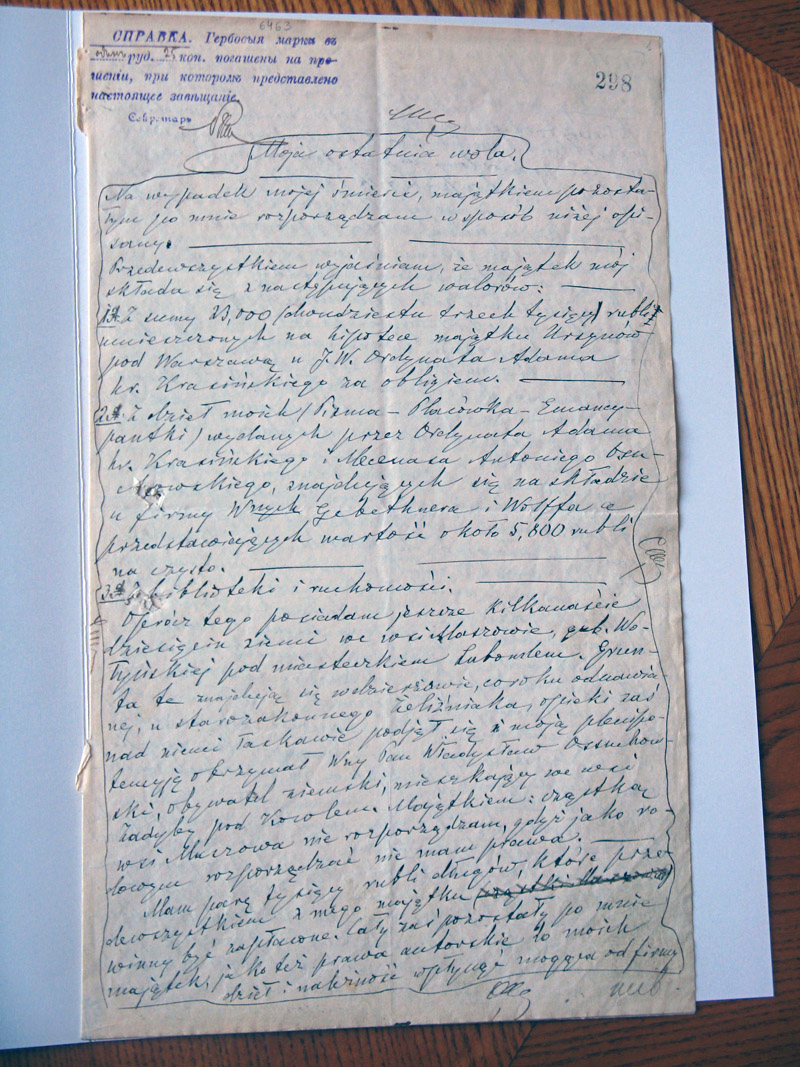 6463
СПРАВКА. Гербовыя марки въ
руб. 25 коп. погашены на про-
шеніи, при которомъ представлено
настоящее завѣщаніе.
Секретарь
298
Moja ostatnia wola.
Na wypadek mojej śmierci, majątkiem pozosta-
łym po mnie rozporządzam w sposób niżej opi-
sany.
Przedewszystkiem wyjaśniam, że majątek mój
składa się z następujących walorów:
1. Z sumy 23,000 (dwudziestu trzech tysięcy) rubli
umieszczonych na hipotece majątku Ursynów
pod Warszawą u J.W. Ordynata Adama
hr. Krasińskiego za obligiem.
2. Z dzieł moich (Pisma – Placówka – Emancy-
pantki) wydanych przez Ordynata Adama
hr. Krasińskiego i Mecenasa Antoniego Osu-
chowskiego, znajdujących się na składzie
u firmy Wnych Gebethnera i Wolffa a
przedstawiających wartość około 5,800 rubli
na czysto.
3. Z biblioteki i ruchomości.
Oprócz tego posiadam jeszcze kilkanaście
dziesięcin ziemi we wsi Maszowie, gub. Wo-
łyńskiej pod miasteczkiem Lubomlem. Grun-
ta te znajdują się w dzierżawie, co roku odnawia-
nej, u starozakonnego Żeliźniaka, opieki zaś
nad niemi łaskawie podjął się i moją plenipo-
tencyją otrzymał Wny Pan Władysław Ossuchow-
ski, obywatel ziemski, mieszkający we wsi
Zadyby pod Kowlem. Majątkiem: cząstką
wsi Maszowa nie rozporządzam, gdyż jako ro-
dowym rozporządzać nie mam prawa.
Mam parę tysięcy rubli długów, które prze-
dewszystkiem z mego majątku
winny być zapłacone. Cały zaś pozostały po mnie
majątek, jako też prawa autorskie do moich
dzieł i należność wpłynąć mogąca od firmy